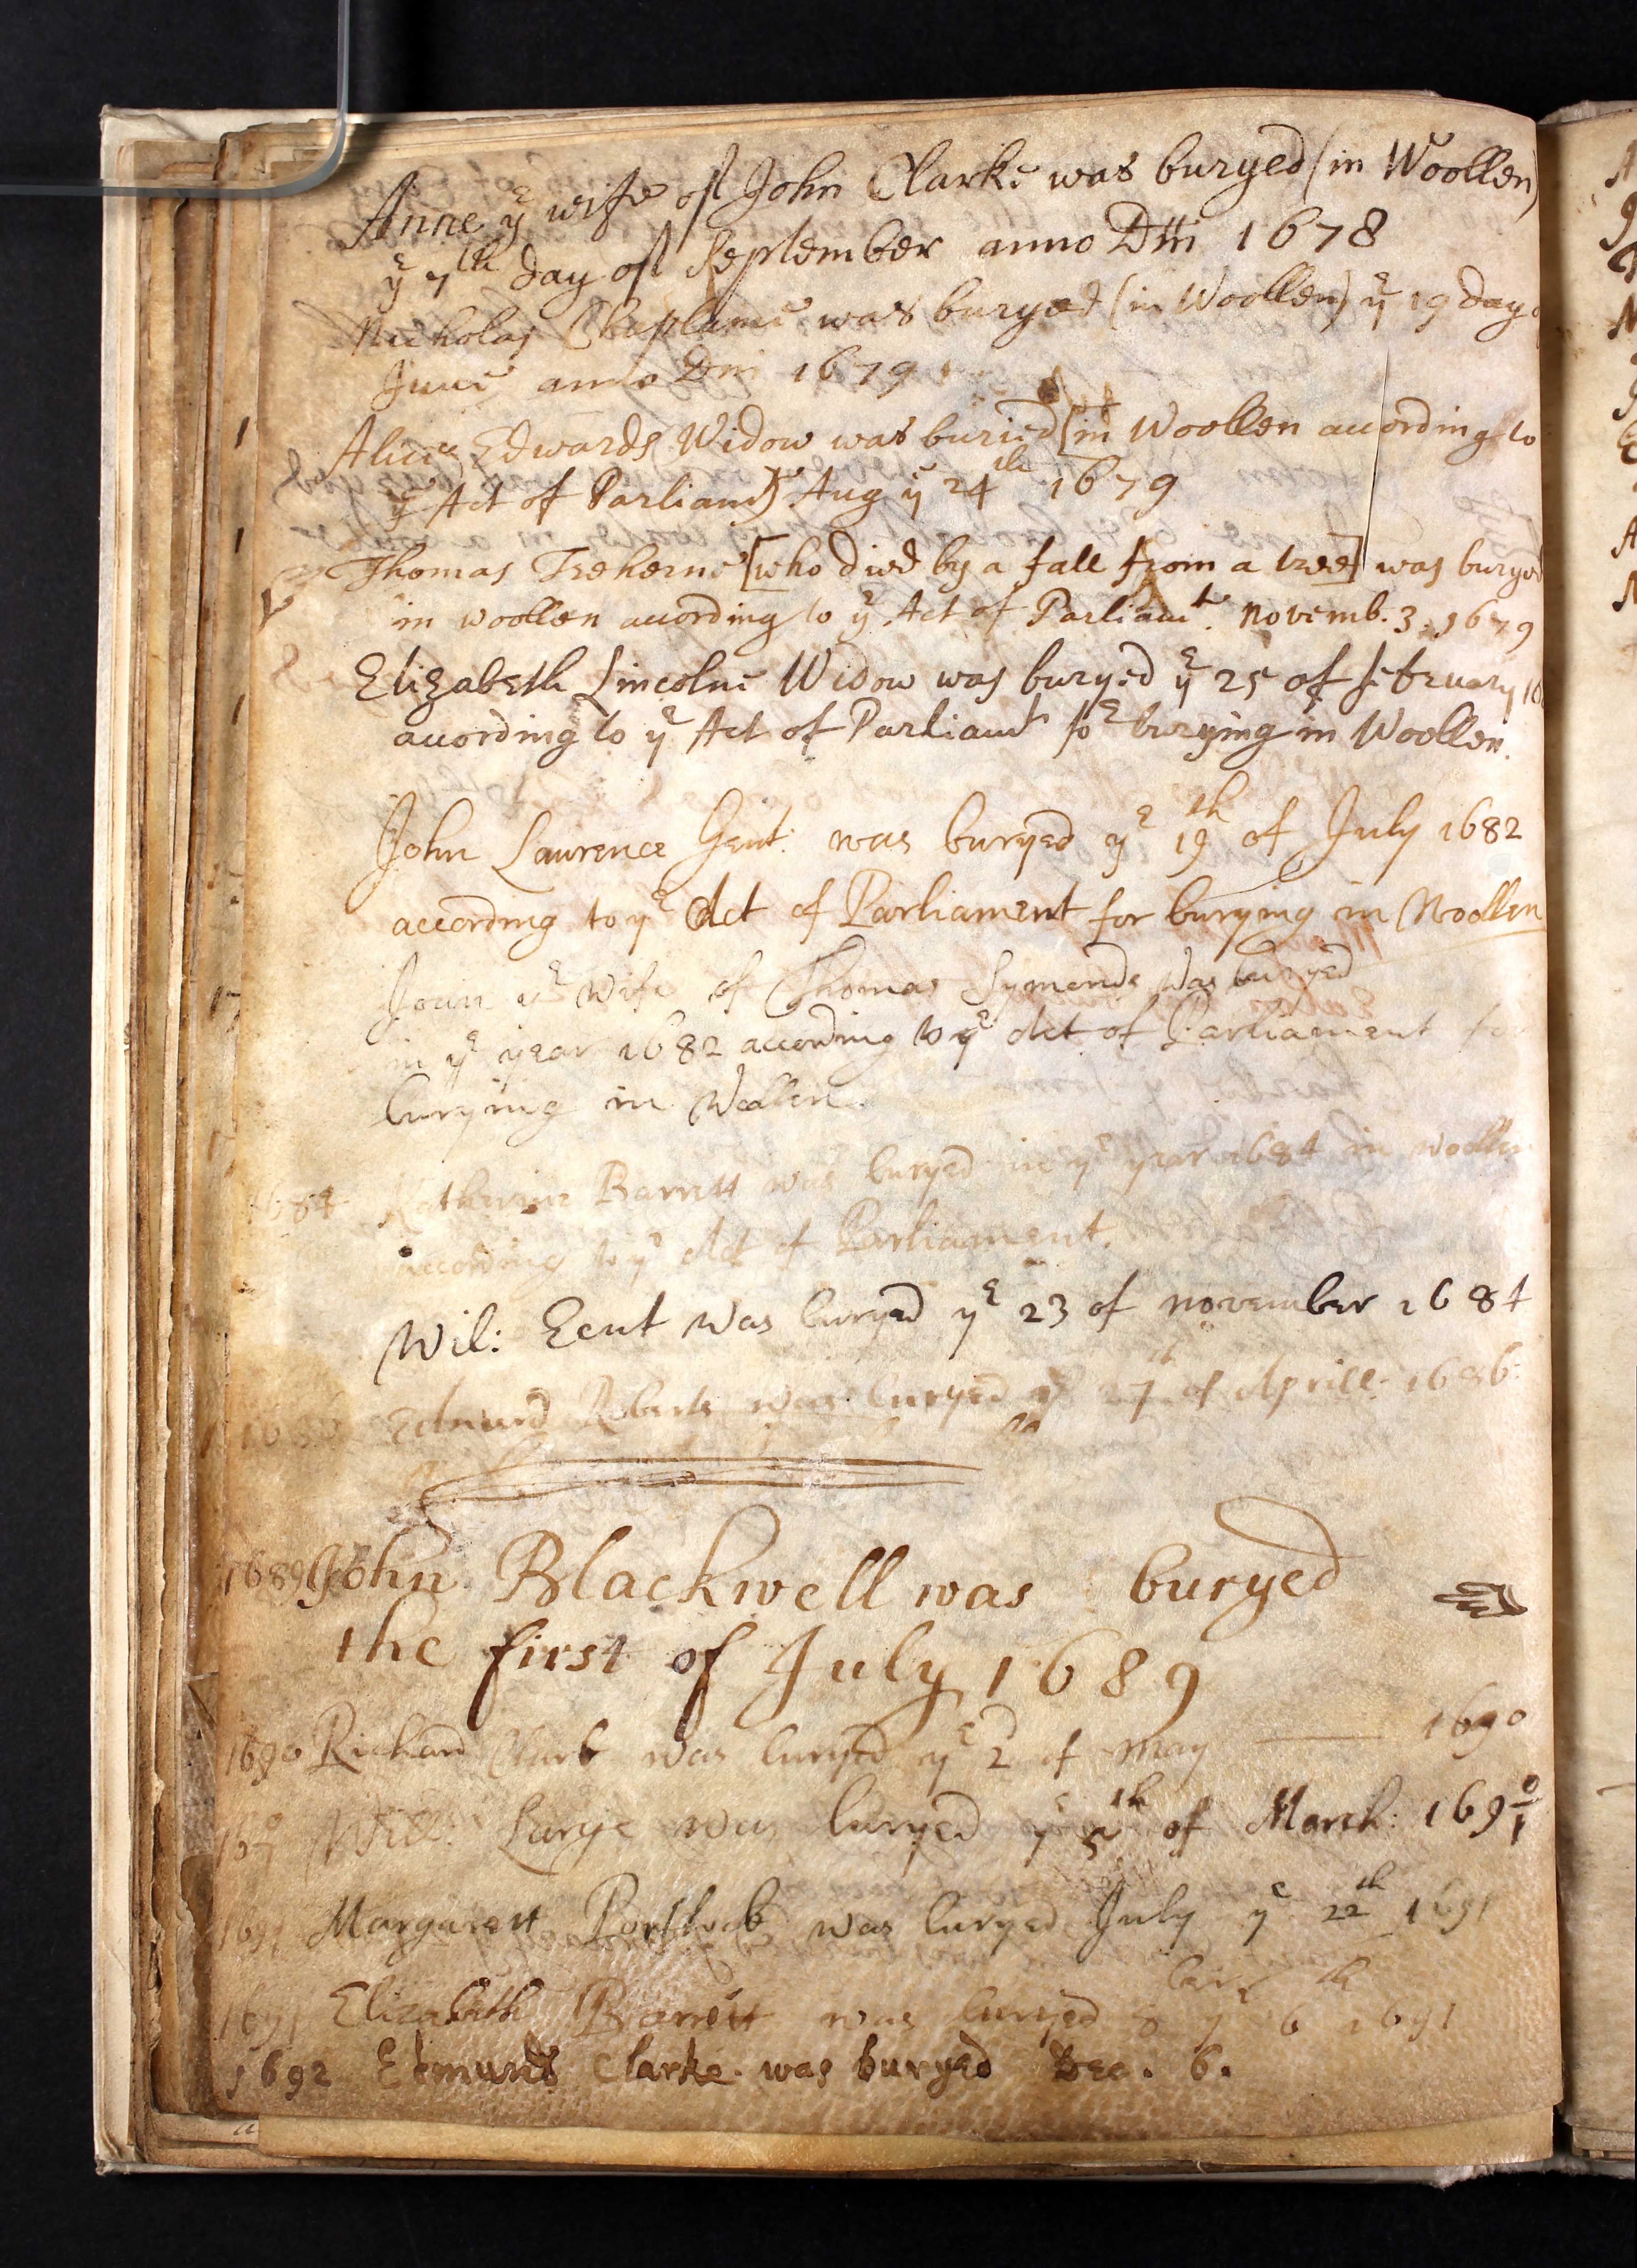 Anne yᵉ wife of John Clarke was buryed (in Woollen)
yᵉ 7th day of September anno Dni 1678
Nicholas Chaplaine was buryed (in Woollen) yᵉ 19 day
June anno Dni 1679
Alice Edwards Widow was buried (in Woollen according to
yᵉ Act of Parliamᵗ) Aug yᵉ 24th 1679
Thomas Treherne [who died by a fall from a tree] was buryed
in woollen according to yᵉ Act of Parliamᵗ. Novemb. 3. 1679
Elizabeth Lincolne Widow was buryed yᵉ 25 of february
according to yᵉ Act of Parliamᵗ foʳ burying in Woollen.
John Lawrence Gent: was buryed yᵉ 19th of July 1682
according to yᵉ Act of Parliament for burying in Woollen
Joan yᵉ Wife of Thomas Symonds was buryed
in yᵉ year 1682 according to yᵉ Act of Parliament
burying in Wollen.
1684 Katherine Barrett was buryed in yᵉ year 1684 in woollen
according to yᵉ Act of Parliament.
Wil: Eeut was buryed yᵉ 23 of november 1684
Edmund Roberts was buryed yᵉ 27th of Aprill: 1686:
1689 John Blackwell was buryed
the first of July 1689
1690 Richard Clark was buryed yᵉ 2d of may 1690
169 0/1 Will: Surye was buryed yᵉ 5th of March: 169 0/1
1691 Margarett Portlock was buryed July yᵉ 22th 1691
1691 Elizabeth Barrett was buryed 8ber yᵉ 6th 1691
1692 Edmund Clarke was buryed Dec. 6.